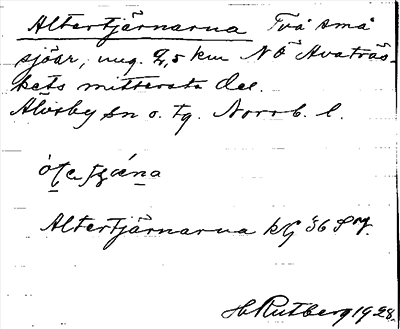 Altertjärnarna Två små
sjöar, ung. 2,5 km NÖ Avaträs-
kets mittersta del.
Älvsby sn o. tg. Norrb. l.
Altertjärnarna kG 36
H. Rutberg 1928.